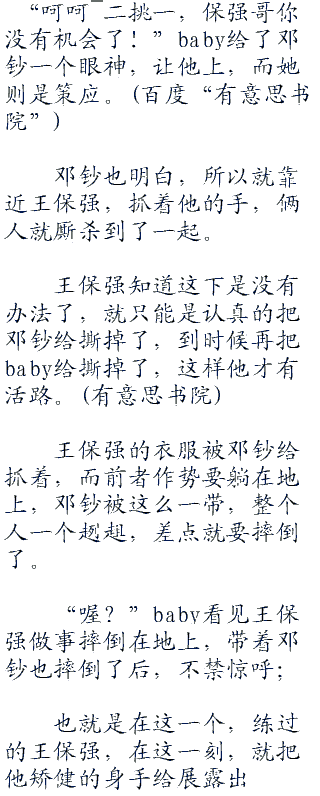 “呵呵 二挑一，保强哥你
没有机会了！”baby给了邓
钞一个眼神，让他上，而她
则是策应。(百度“有意思书
院”)
邓钞也明白，所以就靠
近王保强，抓着他的手，俩
人就厮杀到了一起。
王保强知道这下是没有
办法了，就只能是认真的把
邓钞给撕掉了，到时候再把
baby给撕掉了，这样他才有
活路。(有意思书院)
王保强的衣服被邓钞给
抓着，而前者作势要躺在地
上，邓钞被这么一带，整个
人一个趔趄，差点就要摔倒
了。
“喔？”baby看见王保
强做事摔倒在地上，带着邓
钞也摔倒了后，不禁惊呼；
也就是在这一个，练过
的王保强，在这一刻，就把
他矫健的身手给展露出